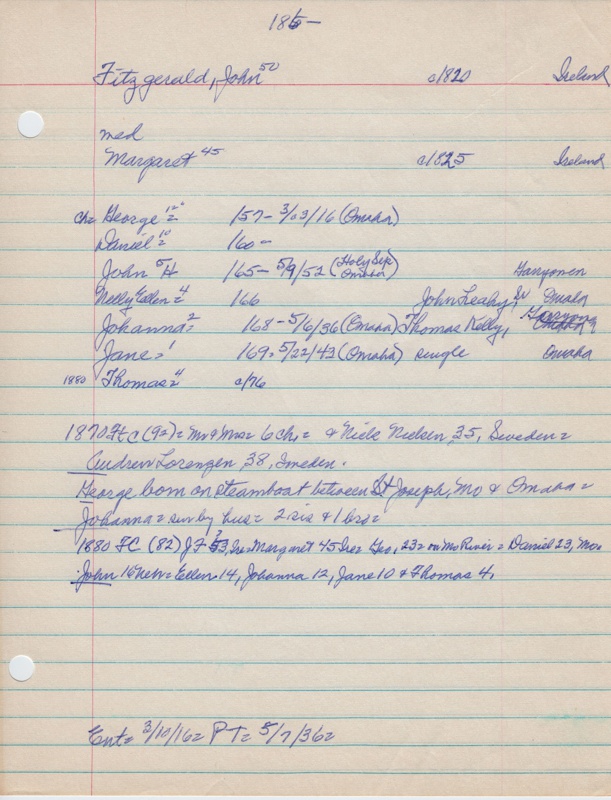 185-
Fitzgerald, John 50 c/1820 Ireland
med
Margaret 45 c/1825 Ireland
ch= George 12= 157- 3/03/16 (Omaha)
Daniel 10= 160-
John 5 165- 5/9/52 (Holy Sep Omaha) Garryonen
Nelly Ellen 4= 166 John Leahy, Sr Omaha
Johanna 2= 168- 5/6/36 (Omaha) Thomas Kelly,
Jane= 1 169= 5/22/43 (Omaha) single Omaha
1880 Thomas= 4 c/76
1870 Ft C (92)= Mr & Mrs= 6 ch.= & Niels Nielsen, 35, Sweden=
Andrew Lorengen, 38, Sweden.
George born on steamboat between St Joseph, Mo & Omaha=
Johanna= sur by hus= 2 sis & 1 bro=
1880 FC (82) J F 53, Ire= Margaret 45 Ire= Geo, 23= on Mo River= Daniel 23, Mo=
John 16 Neb= Ellen 14, Johanna 12, Jane 10 & Thomas 4.
Ent= 3/10/16= P T= 5/7/36=